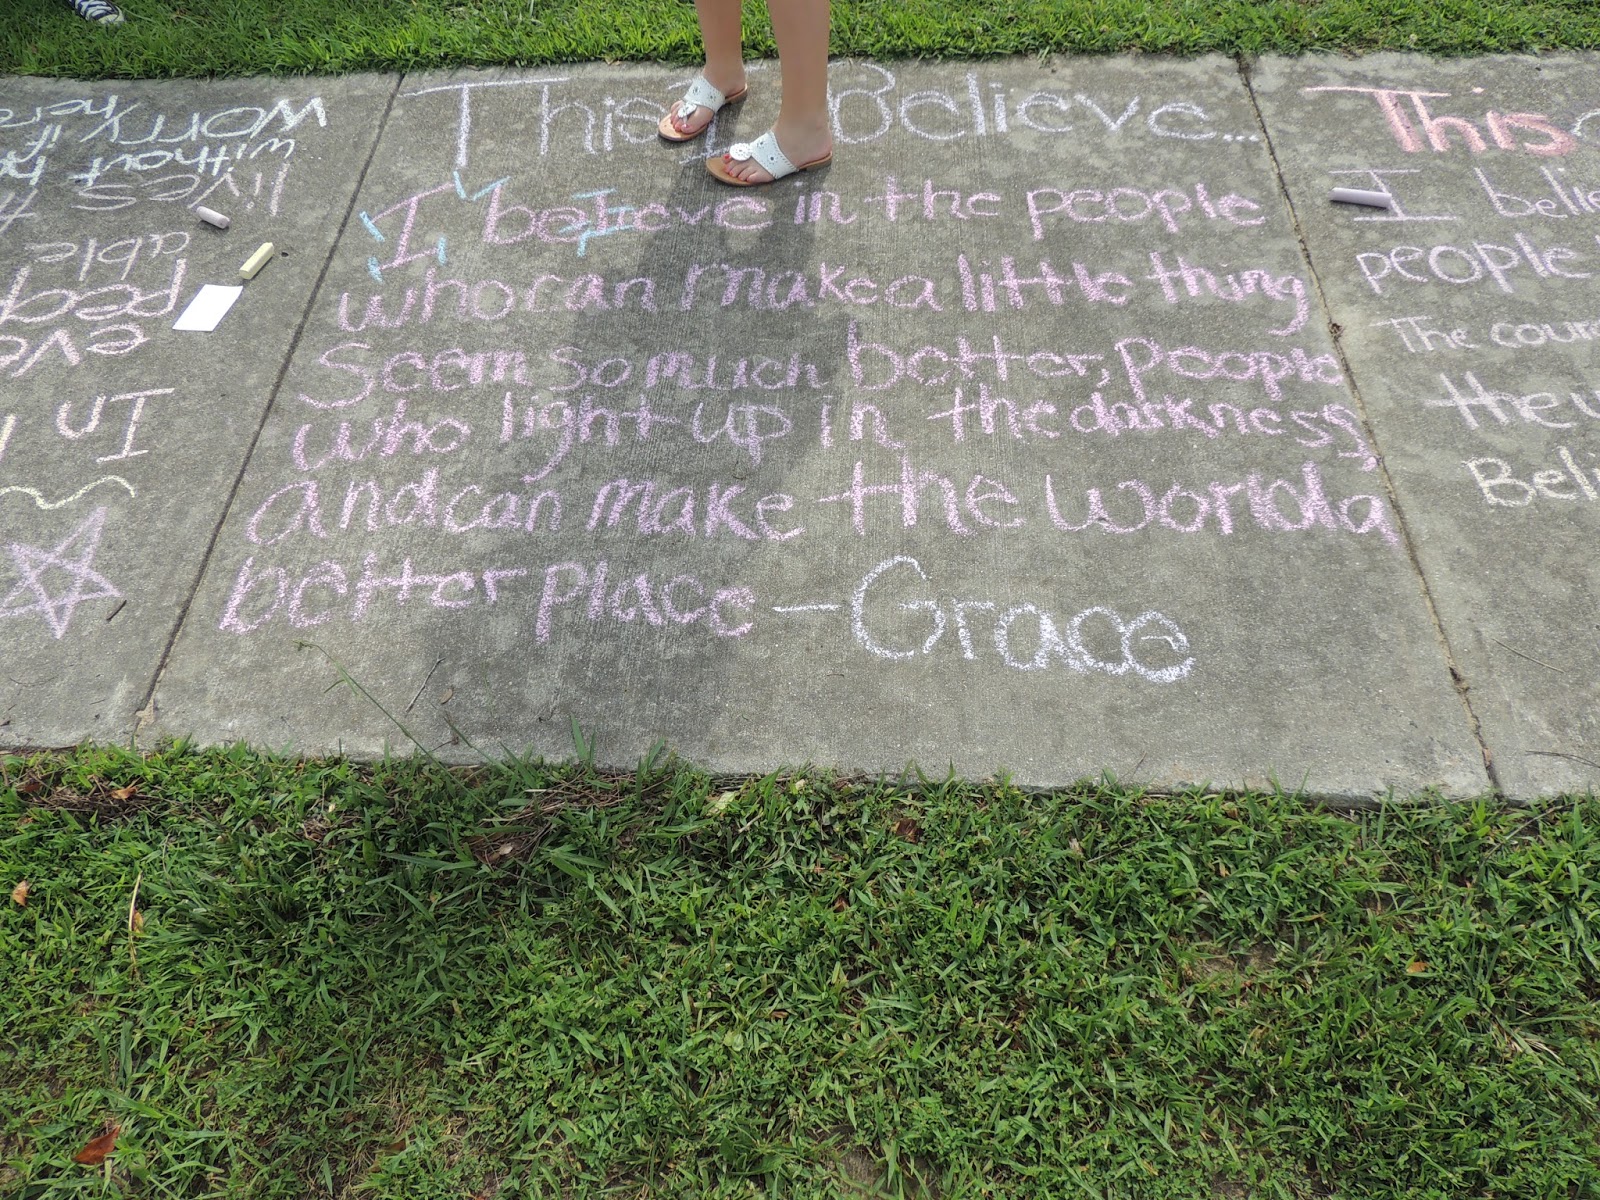 This I Believe...
I believe in the people
who can make a little thing
Seem so much better, people
who light up in the darkness,
and can make the world a
better place - Grace
In
able
lives
without
worry if
here
This
I
people
The